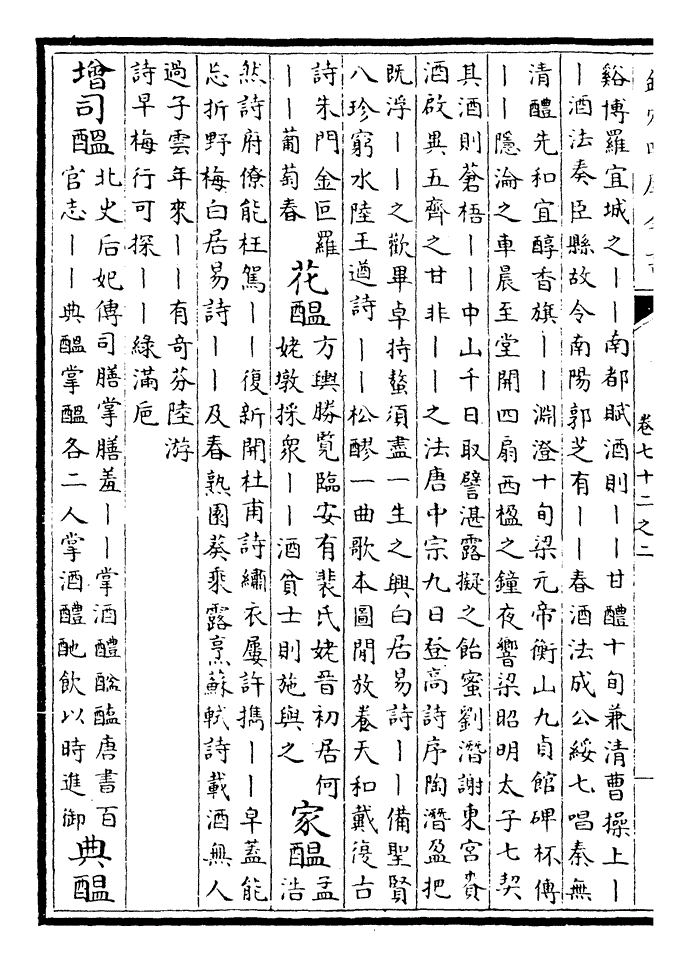 欽定四庫全書
卷七十二之二
谿博羅宜城之丨丨南都賦酒則丨丨甘醴十旬兼清曹操上丨
丨酒法奏臣縣故令南陽郭芝有丨丨春酒法成公綏七唱秦無
清醴先和宜醇香旗丨丨淵澄十旬梁元帝衡山九貞館碑杯傳
丨丨隱淪之車晨至堂開四扇西楹之鐘夜響梁昭明太子七契
其酒則蒼梧丨丨中山千日取譬湛露擬之飴蜜劉潛謝東宮賚
酒啟異五齊之甘非丨丨之法唐中宗九日登高詩序陶潛盈把
既浮丨丨之歡畢卓持螯須盡一生之興白居易詩丨丨備聖賢
八珍窮水陸王遒詩丨丨松醪一曲歌本圖閒放養天和戴復古
詩朱門金叵羅
丨丨葡萄春
花醖
方輿勝覧臨安有裴氏姥晉初居何
姥墩採衆丨丨酒貧士則施與之
家醖
孟
浩
然詩府僚能枉駕丨丨復新開杜甫詩繡衣屢許携丨丨皁蓋能
忘折野梅白居易詩丨丨及春熟園葵乘露烹蘇軾詩載酒無人
過子雲年來丨丨有奇芬陸游
詩早梅行可探丨丨綠滿巵
增司醖
北史后妃傳司膳掌膳羞丨丨掌酒醴醓醢唐書百
官志丨丨典醖掌醖各二人掌酒醴酏飲以時進御
典醖